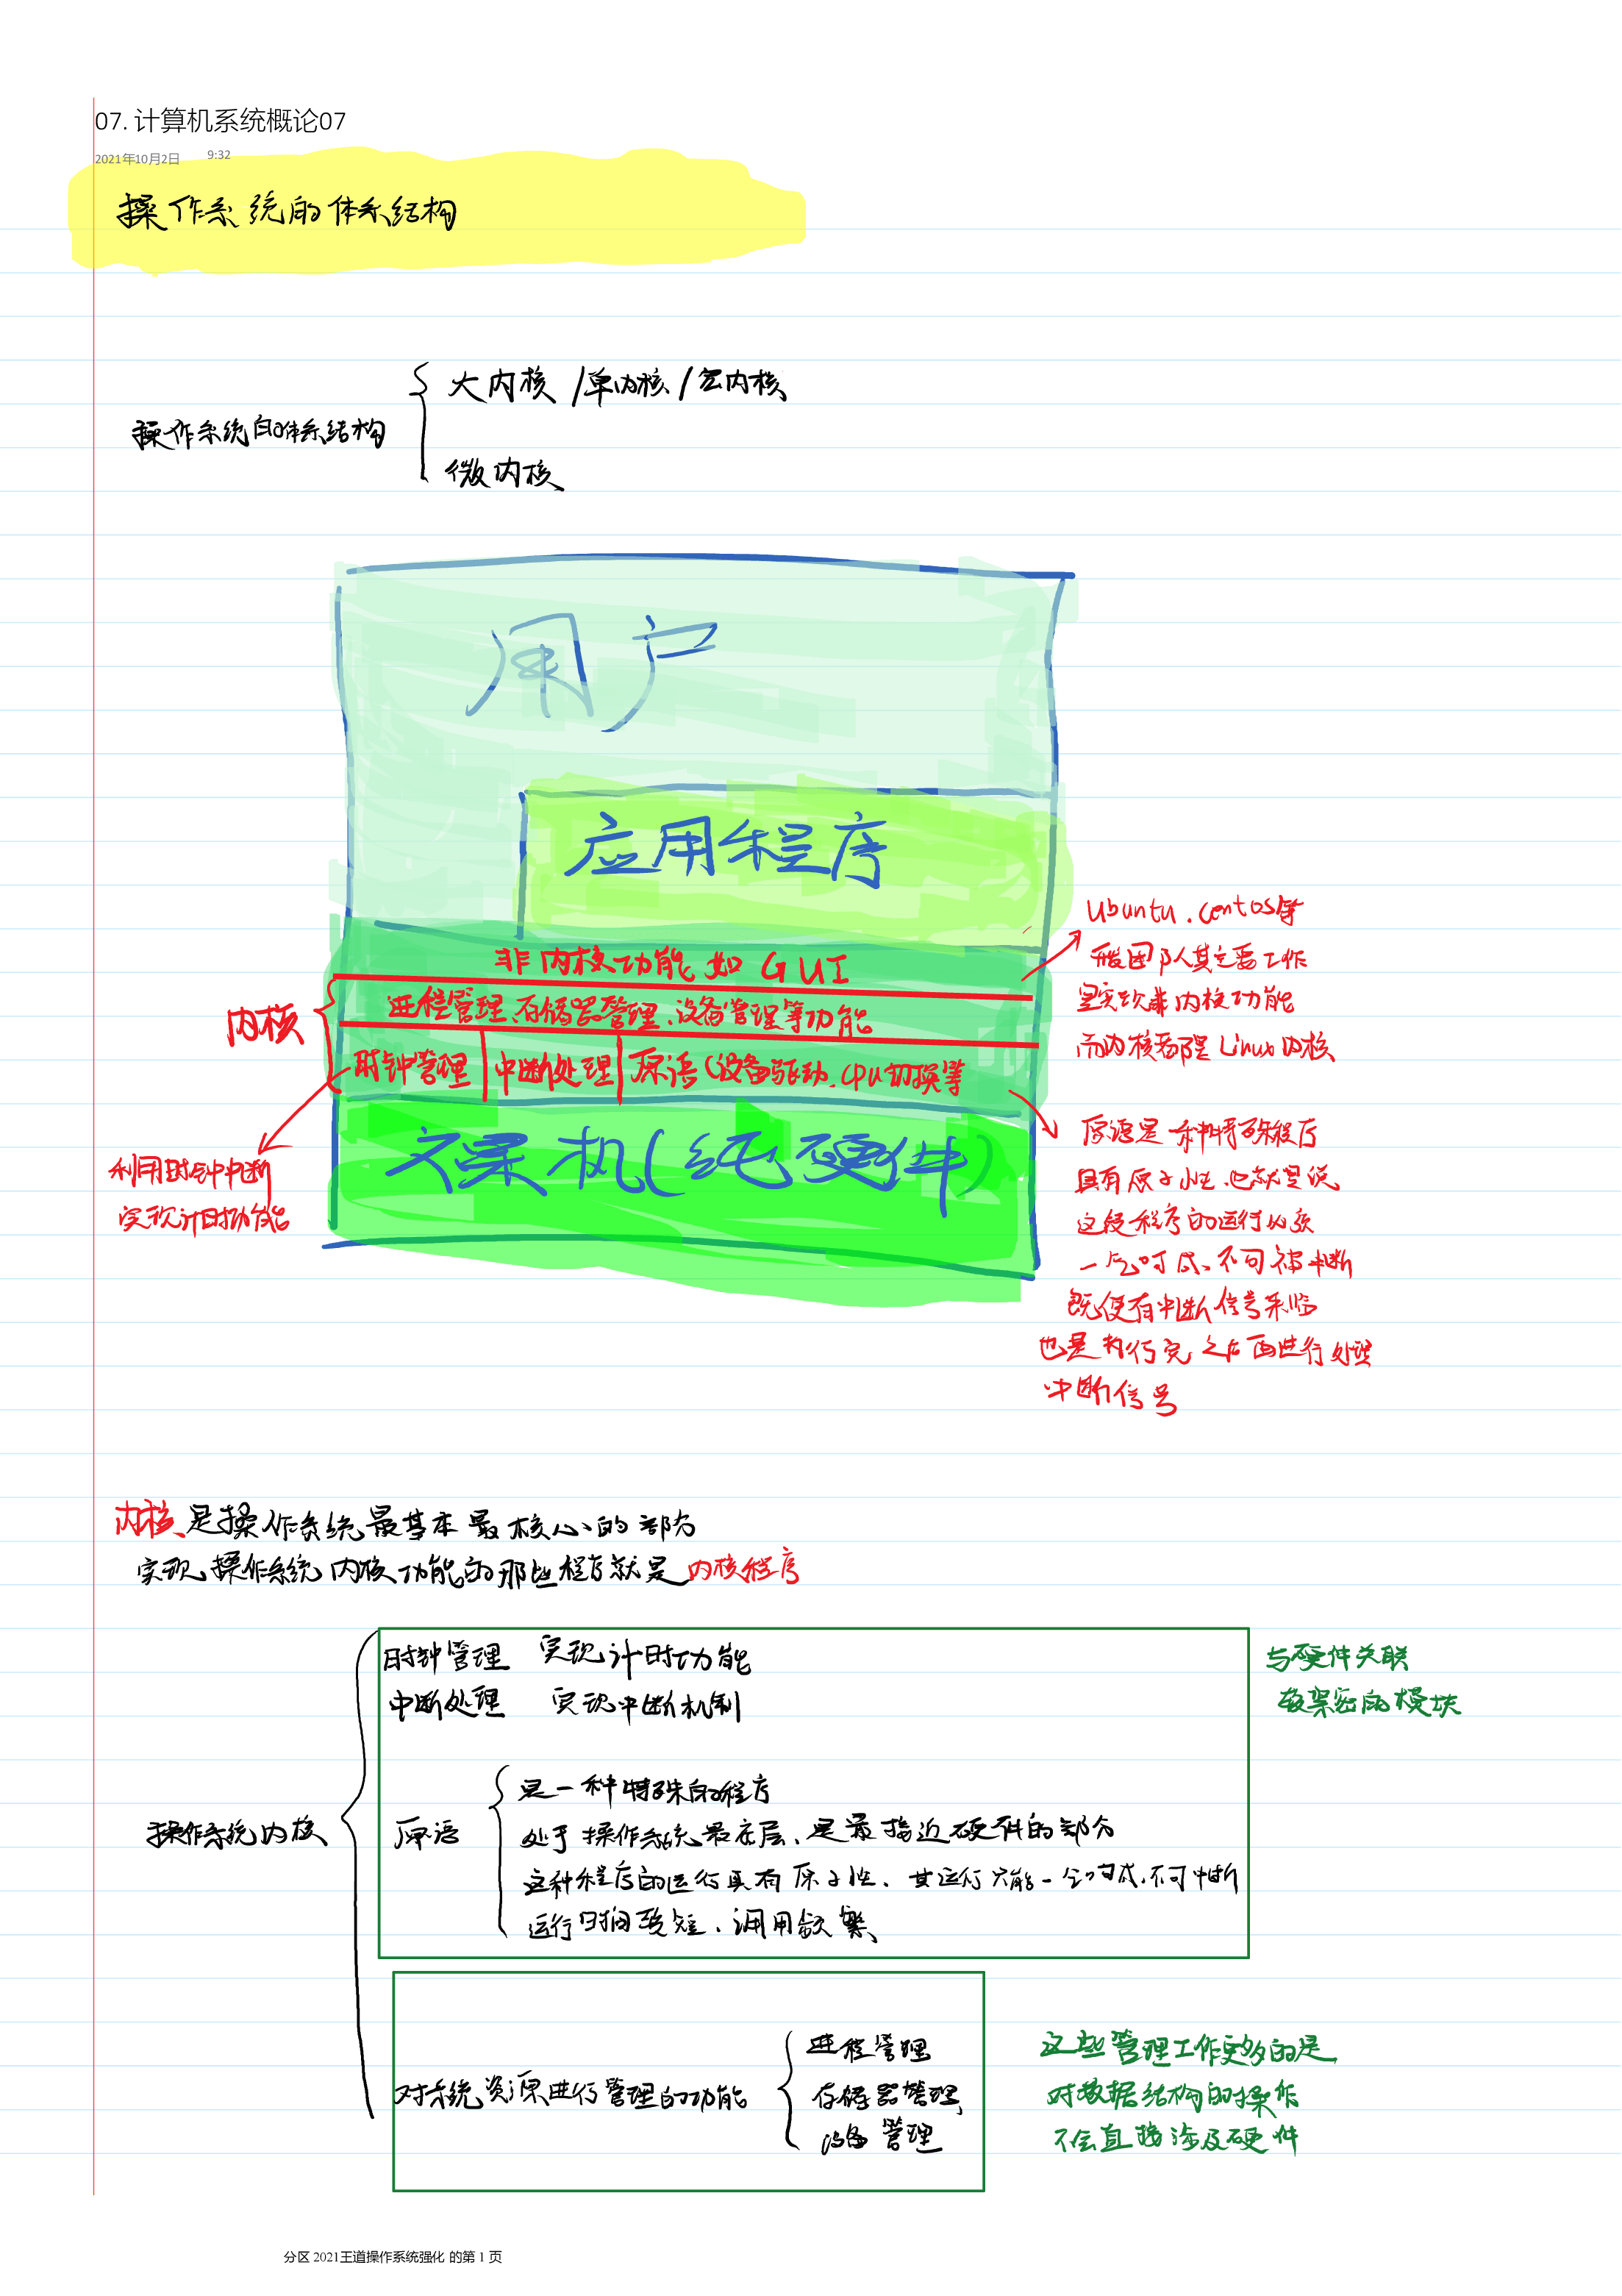 07. 计算机系统概论07
2021年10月2日 9:32
操作系统的体系结构
大内核/单内核/宏内核
操作系统的体系结构
微内核
用户
应用程序
非内核功能如GUI
内核
进程管理、存储器管理、设备管理等功能
时钟管理 中断处理 原语(设备驱动、CPU切换等
裸机(纯硬件)
Ubuntu、Centos等
团队其主要工作
是实现非内核功能
而内核都是Linux内核
利用时钟中断
实现计时功能
原语是一种特殊程序
具有原子性、也就是说
这段程序的运行必须
一气呵成、不可被中断
既便有中断信号来临
也是执行完之后再进行处理
中断信号
内核是操作系统最基本最核心的部分
实现操作系统内核功能的那些程序就是内核程序
时钟管理 实现计时功能
中断处理 实现中断机制
与硬件关联
较紧密的模块
操作系统内核
原语
是一种特殊的程序
处于操作系统最底层、是最接近硬件的部分
这种程序的运行具有原子性、其运行只能一气呵成、不可中断
运行时间较短、调用频繁
对系统资源进行管理的功能
进程管理
存储器管理
设备管理
这些管理工作更多的是
对数据结构的操作
不会直接涉及硬件
分区 2021王道操作系统强化 的第 1 页